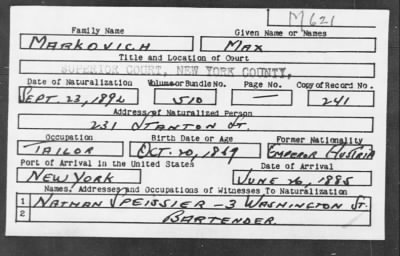 M621
Family Name Given Name or Names
MARKOVICH MAX
Title and Location of Court
SUPERIOR COURT, NEW YORK COUNTY,
Date of Naturalization Volume or Bundle No. Page No. Copy of Record No.
SEPT. 23, 1892 510 — 241
Address of Naturalized Person
231 STANTON ST.
Occupation Birth Date or Age Former Nationality
TAILOR OCT. 20, 1859 EMPEROR AUSTRIA
Port of Arrival in the United States Date of Arrival
NEW YORK JUNE 26, 1885
Names, Addresses and Occupations of Witnesses To Naturalization
1 NATHAN SPEISSIER - 3 WASHINGTON ST.
2 BARTENDER.